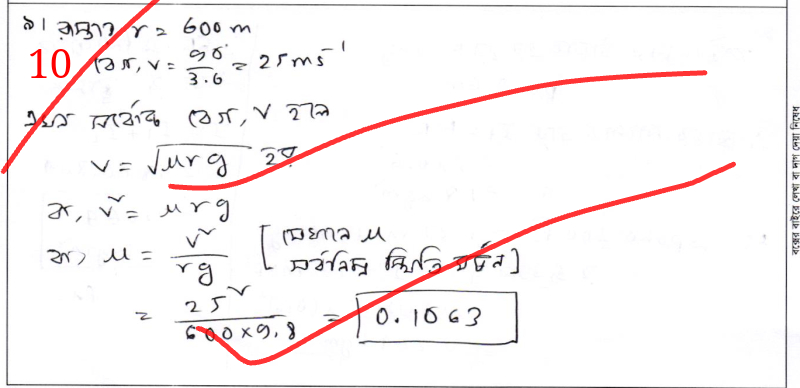 ৯। রাস্তার r = 600 m
10
বেগ, v = 90/3.6 = 25 ms⁻¹
এখন সর্বোচ্চ বেগ, v হলে
v = √μrg হয়
বা, v² = μrg
বা, μ = v²/rg [যেখানে μ
সর্বনিম্ন স্থিতি ঘর্ষন]
= 25²/600×9.8 = 0.1063
বক্সের বাইরে লেখা বা দাগ দেয়া নিষেধ